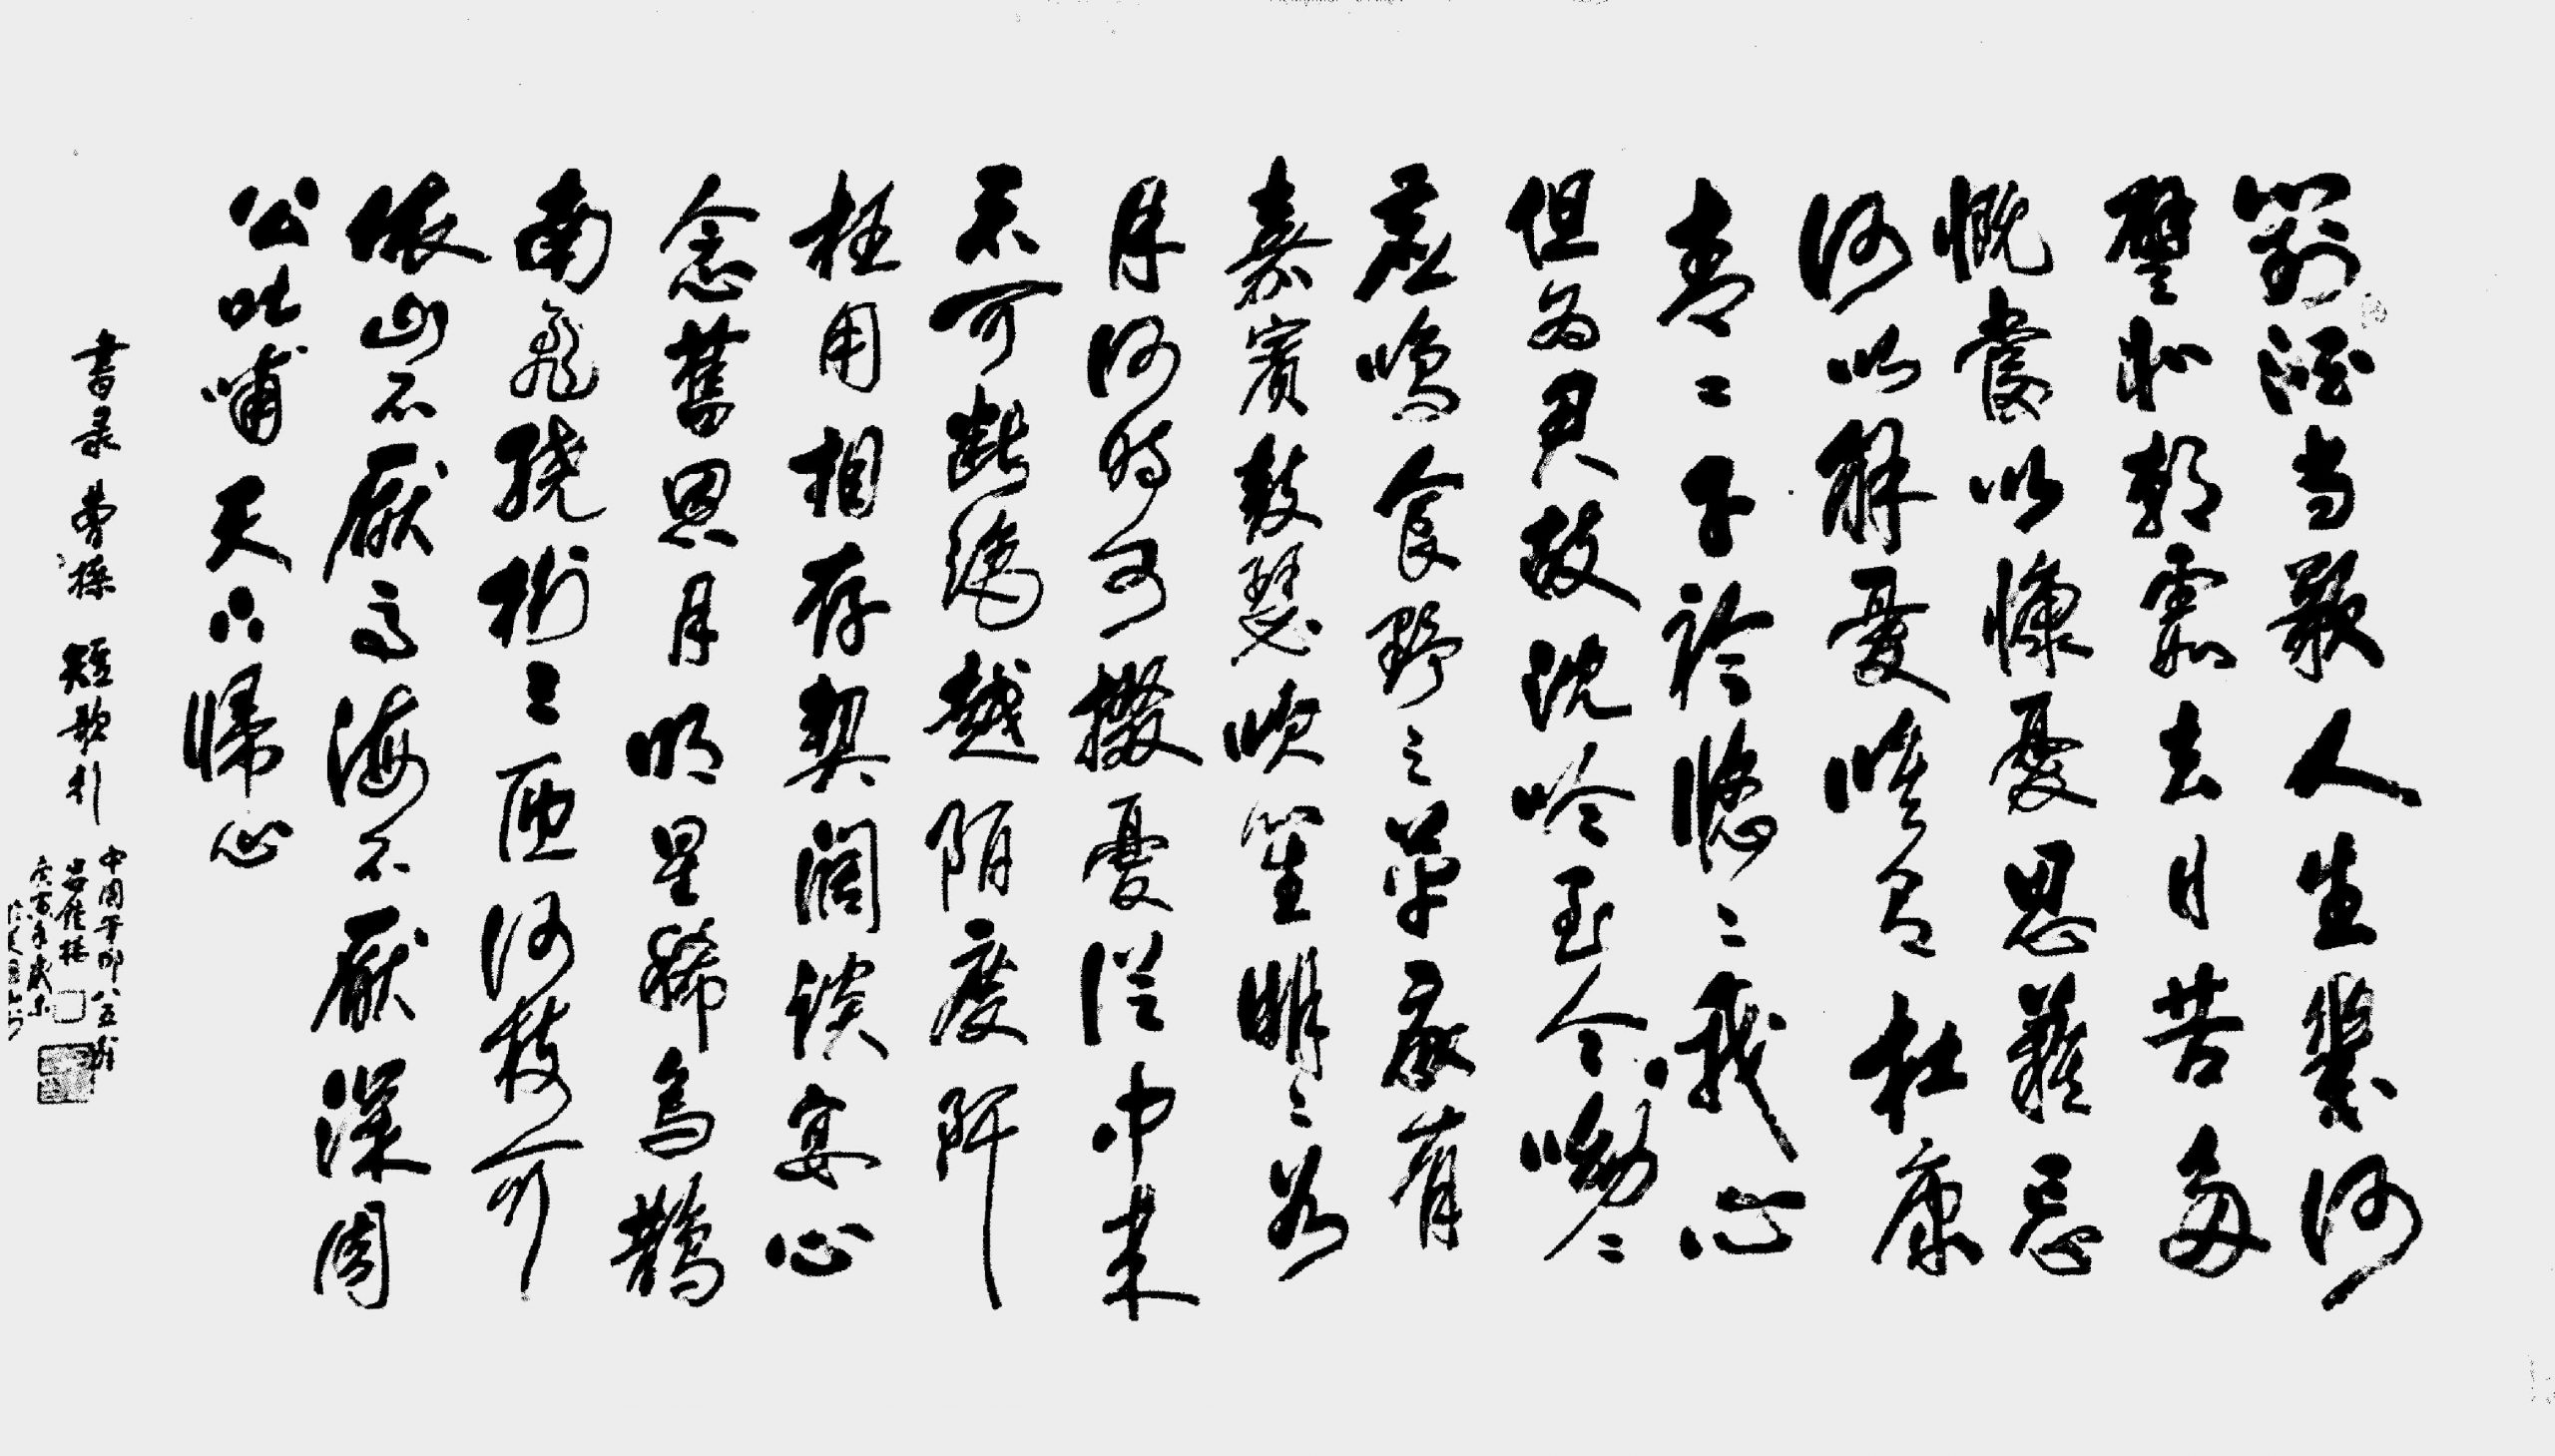 對酒当歌人生幾何
譬如朝露去日苦多
慨當以慷憂思難忘
何以解憂唯有杜康
青々子衿悠々我心
但為君故沈吟至今呦々
鹿鳴食野之苹我有
嘉賓鼓瑟吹笙明々如
月何時可掇憂從中来
不可斷绝越陌度阡
枉用相存契闊談宴心
念舊恩月明星稀烏鵲
南飛繞樹三匝何枝可
依山不厭高海不厭深周
公吐哺天下歸心
書录曹操短歌行